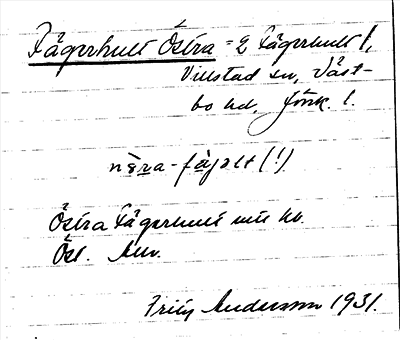 Fägerhult Östra = 2 Fägerhult 1,
Villstad sn, Väst-
bo hd, Jönk. l.
nɛra-fäjɘlt (!)
Östra Fägerhult
Öst.
Fritz Andersson 1931.